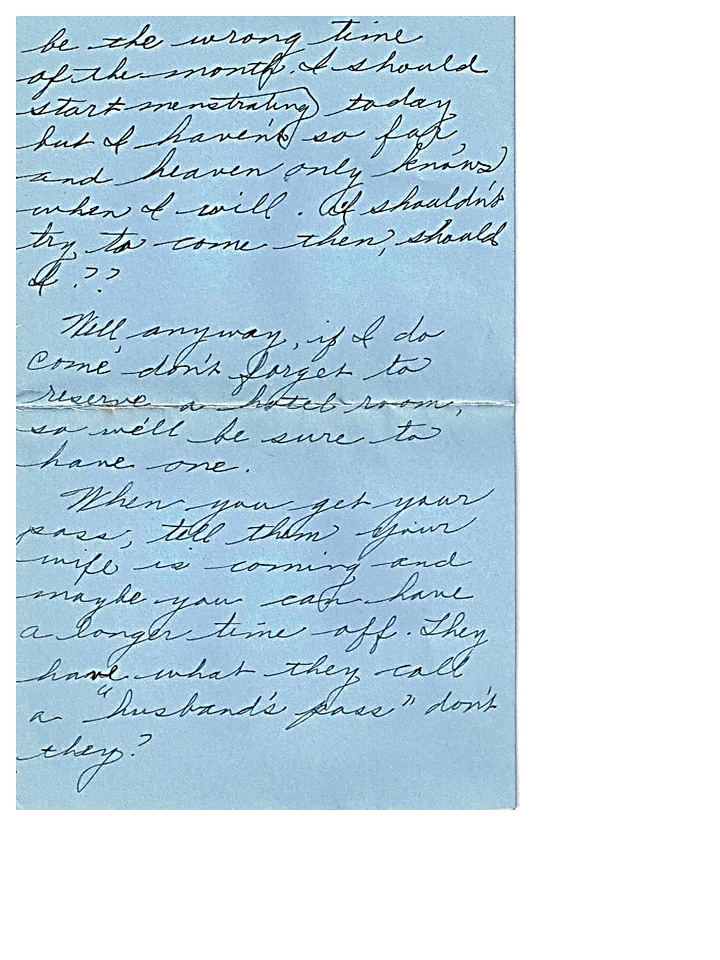 be the wrong time
of the month. I should
start menstrating) today
but I haven't so far,
and heaven only knows
when I will. (I shouldn't
try to come then, should
I??
Well anyway, if I do
come don't forget to
reserve a hotel room,
so we'll be sure to
have one.
When you get your
pass, tell them your
wife is coming and
maybe you can have
a longer time off. They
have what they call
a "husband's pass" don't
they?